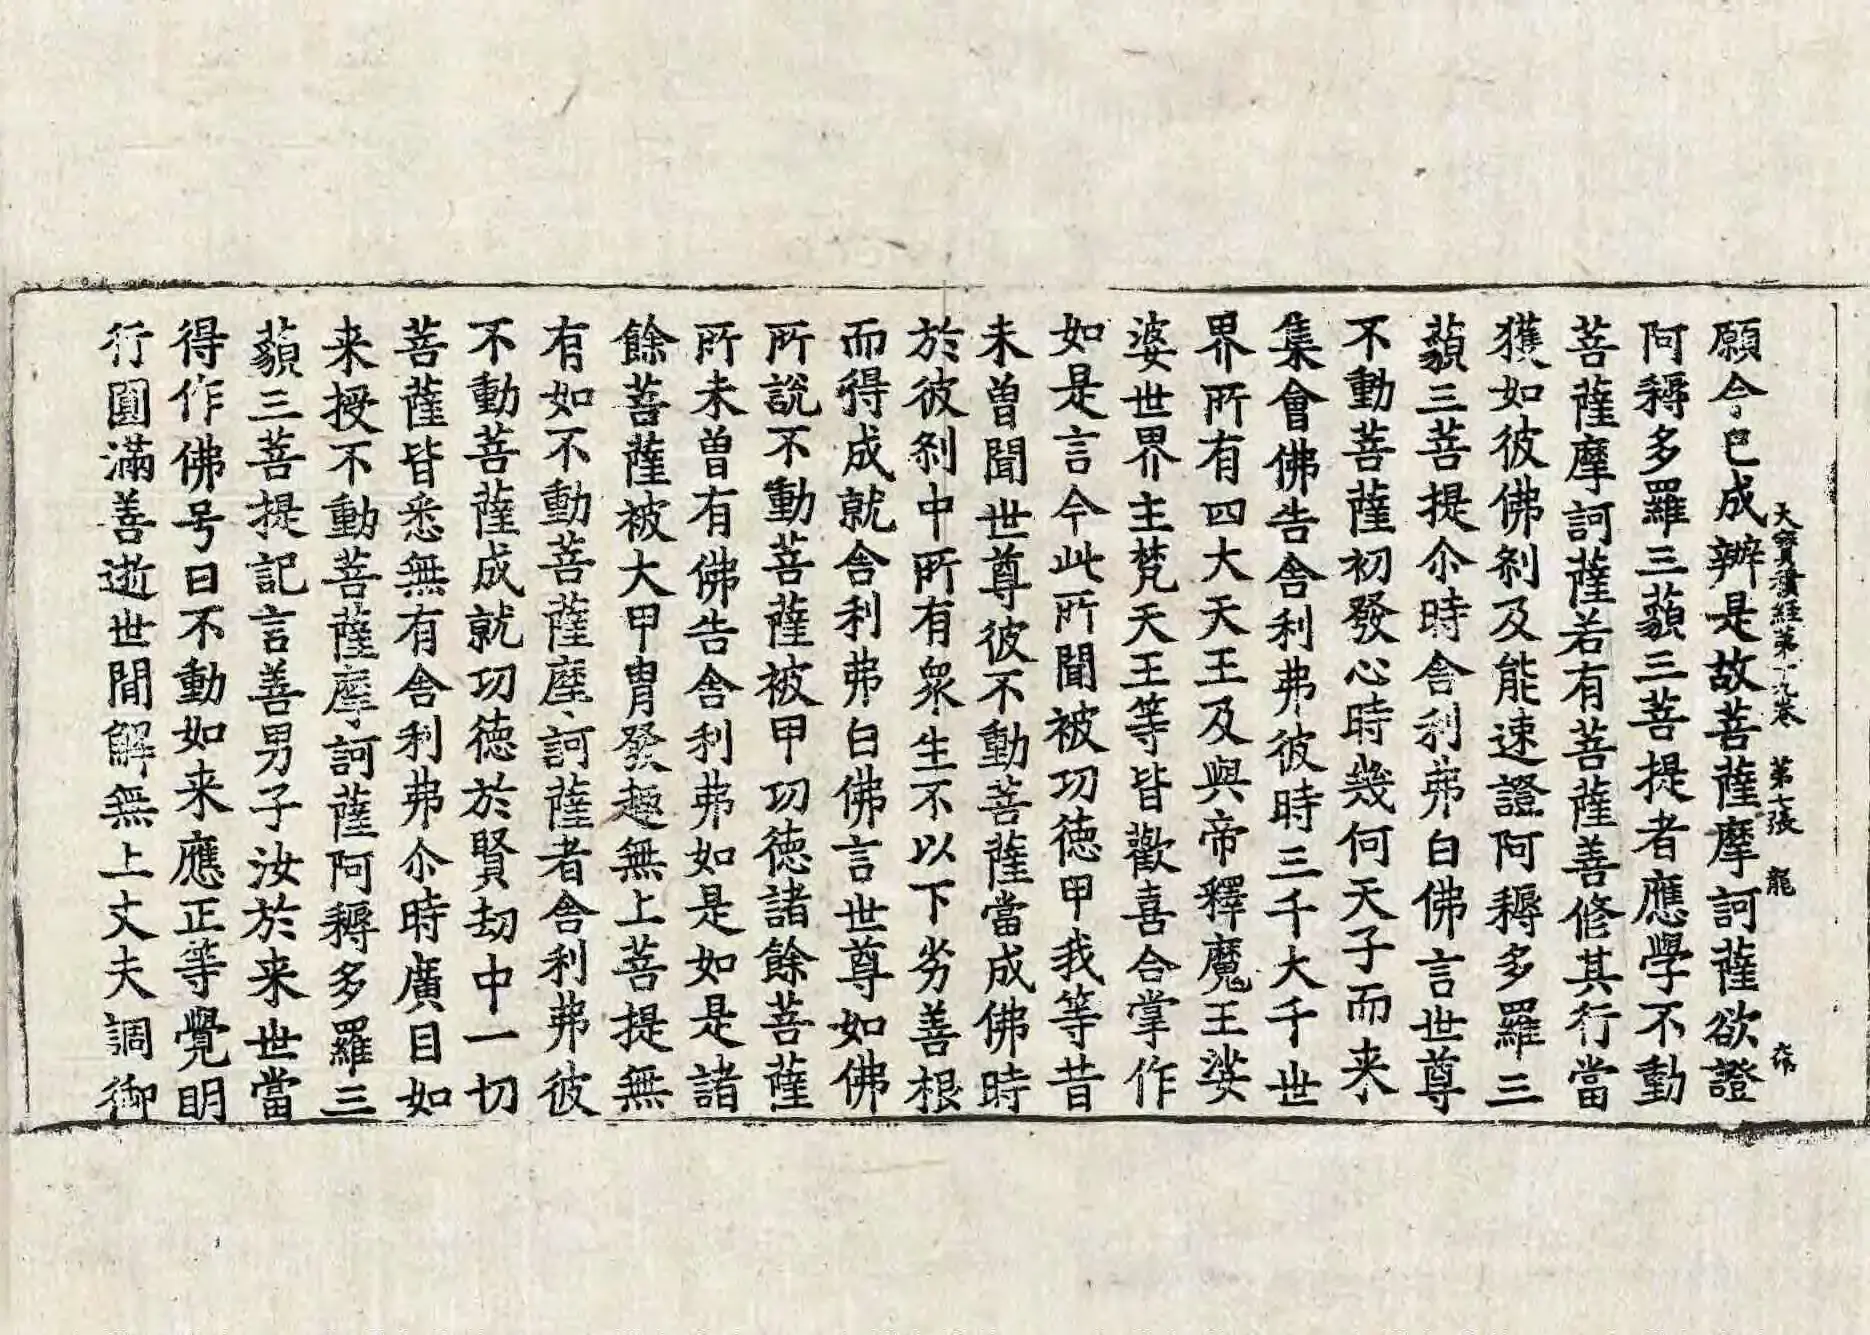 願今已成辦是故菩薩摩訶薩欲證
大寶積經第十九卷 第七張 龍
阿耨多羅三藐三菩提者應學不動
菩薩摩訶薩若有菩薩善修其行當
獲如彼佛刹及能速證阿耨多羅三
藐三菩提尒時舍利弗白佛言世尊
不動菩薩初發心時幾何天子而来
集會佛告舍利弗彼時三千大千世
界所有四大天王及與帝釋魔王娑
婆世界主梵天王等皆歡喜合掌作
如是言今此所聞被功徳甲我等昔
未曽聞世尊彼不動菩薩當成佛時
於彼刹中所有衆生不以下劣善根
而得成就舍利弗白佛言世尊如佛
所說不動菩薩被甲功徳諸餘菩薩
所未曽有佛告舍利弗如是如是諸
餘菩薩被大甲胄發趣無上菩提無
有如不動菩薩摩訶薩者舍利弗彼
不動菩薩成就功徳於賢劫中一切
菩薩皆悉無有舍利弗尒時廣目如
来授不動菩薩摩訶薩阿耨多羅三
藐三菩提記言善男子汝於来世當
得作佛号曰不動如来應正等覺明
行圓滿善逝世間解無上丈夫調御